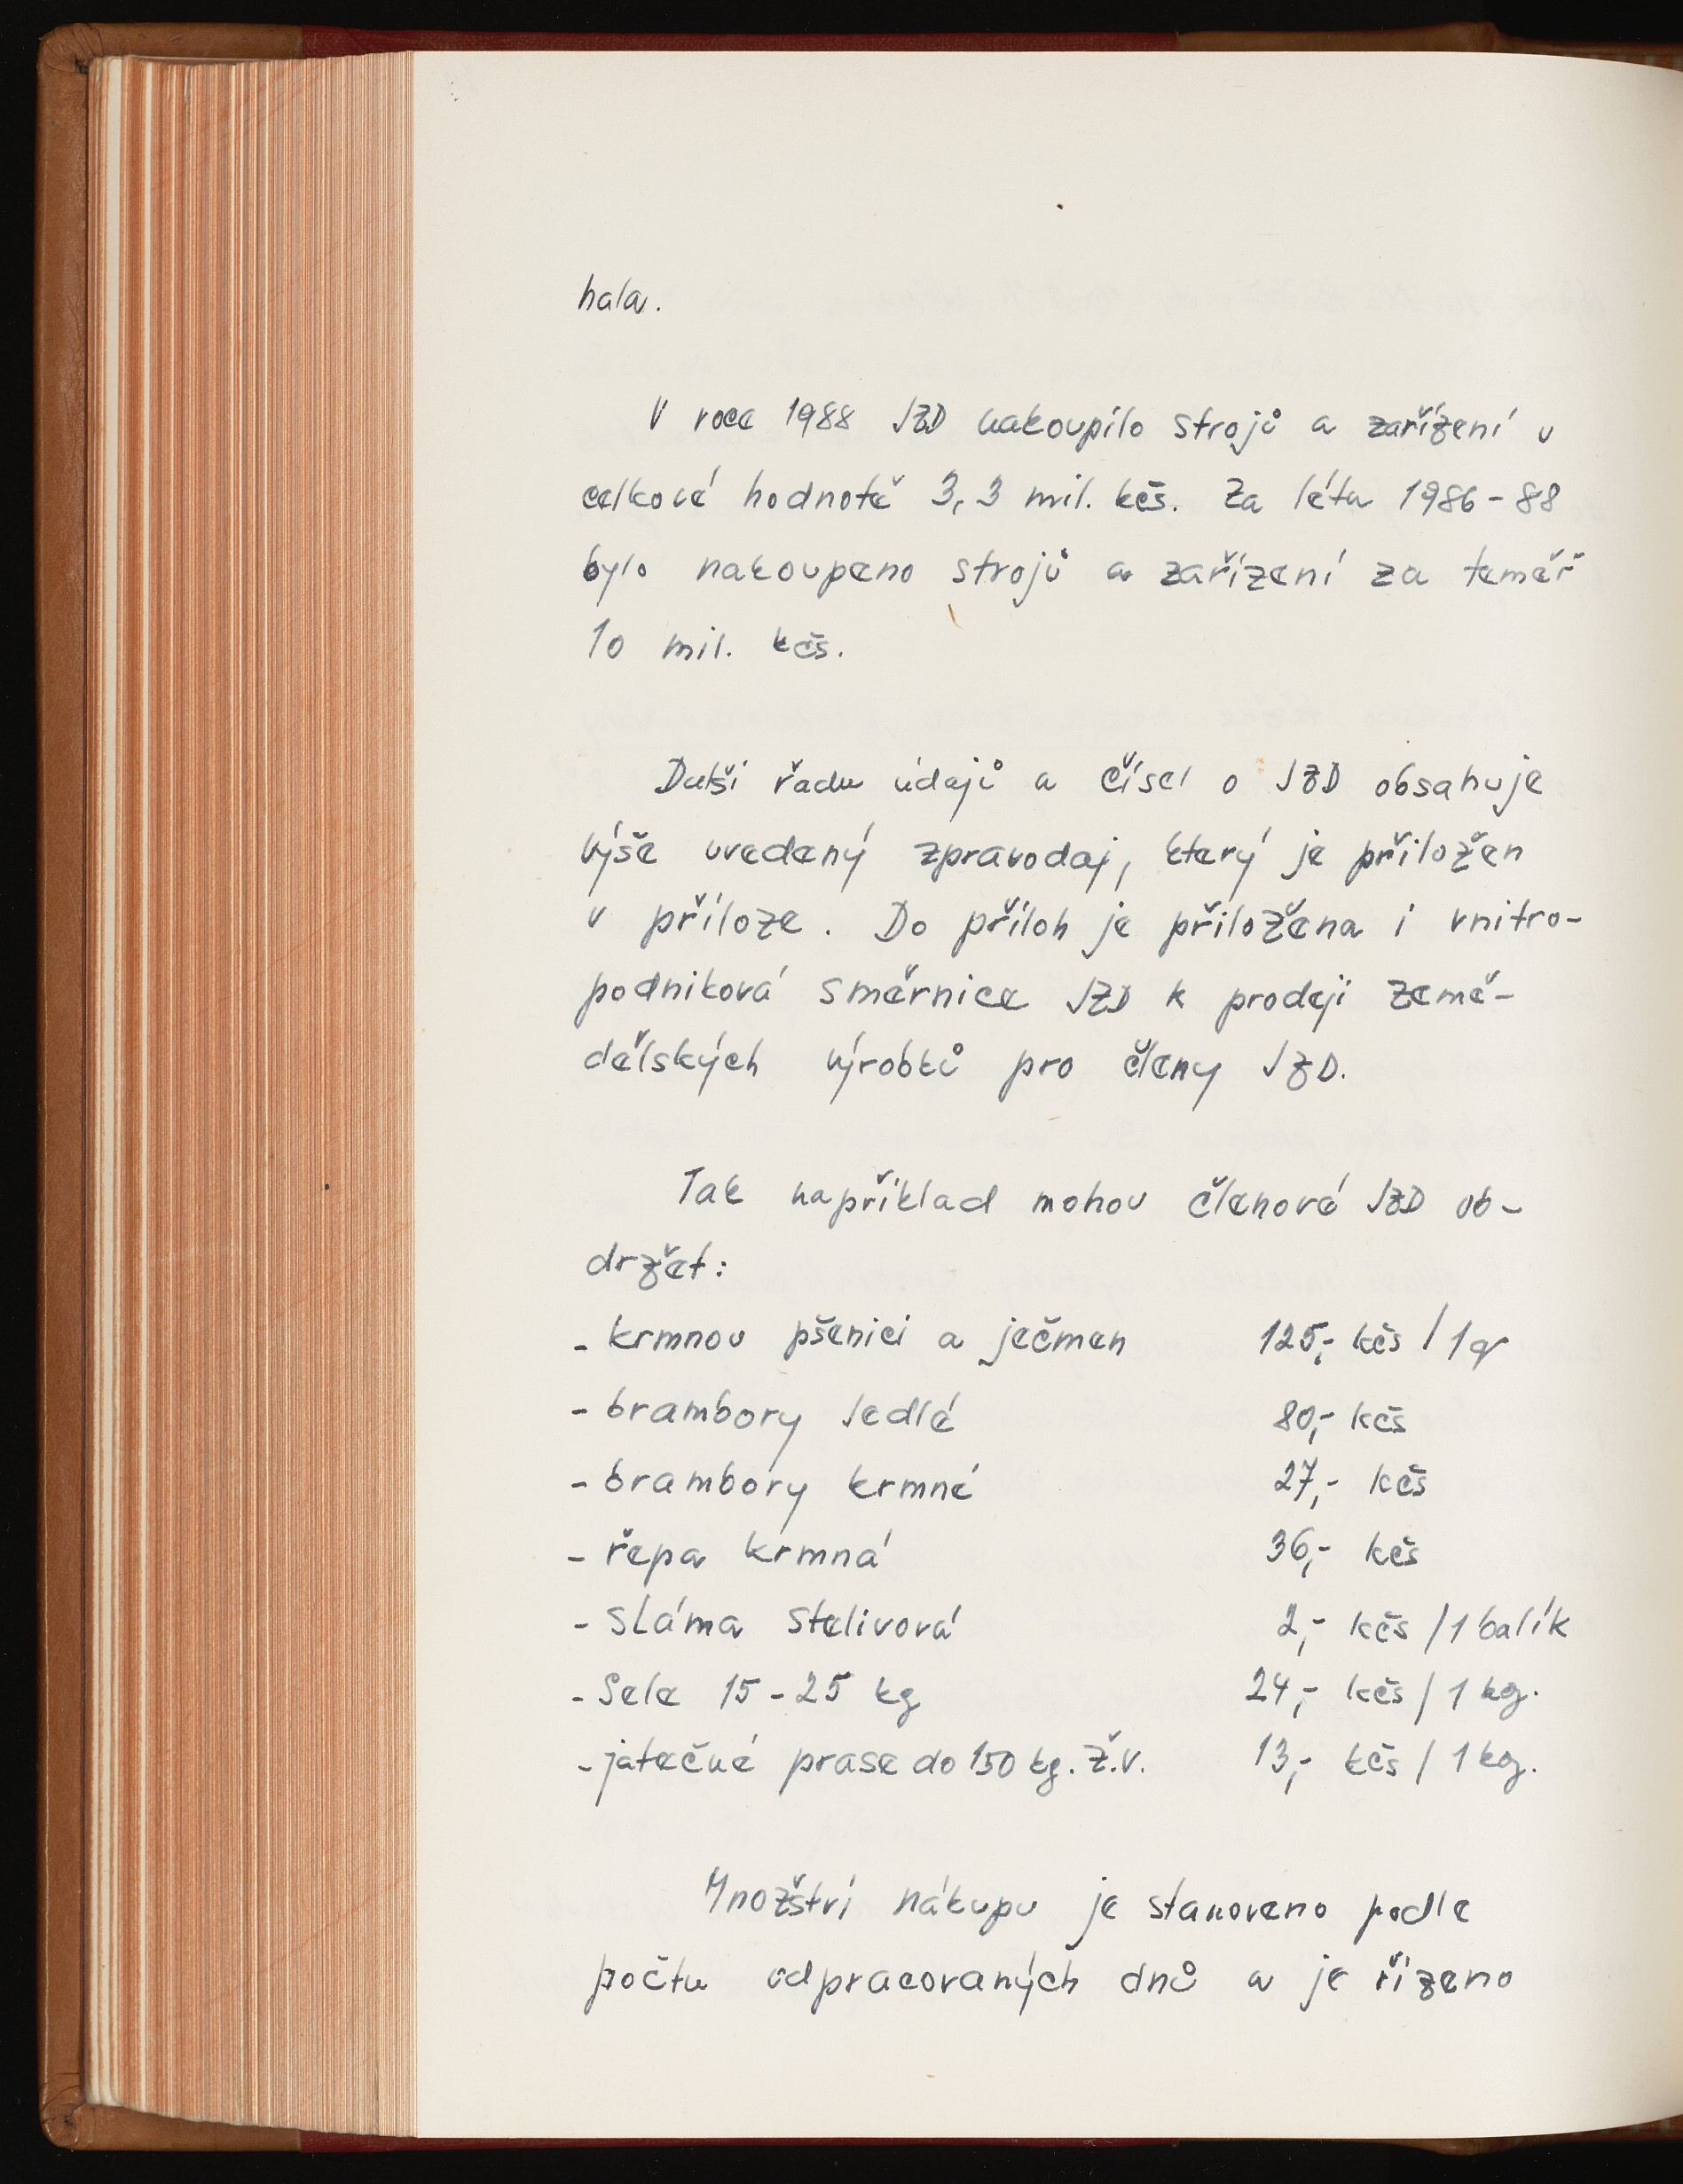 hala.
V roce 1988 JZD nakoupilo strojů a zařízení v
celkové hodnotě 3,3 mil. kčs. Za léta 1986-88
bylo nakoupeno strojů a zařízení za téměř
10 mil. kčs.
Další řadu údajů a čísel o JZD obsahuje
výše uvedený zpravodaj, který je přiložen
v příloze. Do příloh je přiložena i vnitro-
podniková směrnice JZD k prodeji země-
dělských výrobků pro členy JZD.
Tak například mohou členové JZD ob-
držet:
- krmnou pšenici a ječmen 125,- kčs / 1q
- brambory jedlé 80,- kčs
- brambory krmné 27,- kčs
- řepa krmná 36,- kčs
- sláma stelivová 2,- kčs / 1 balík
- Sele 15-25 kg 24,- kčs / 1 kg.
- jatečné prase do 150 kg. ž.v. 13,- kčs / 1 kg.
Množství nákupu je stanoveno podle
počtu odpracovaných dnů a je řízeno